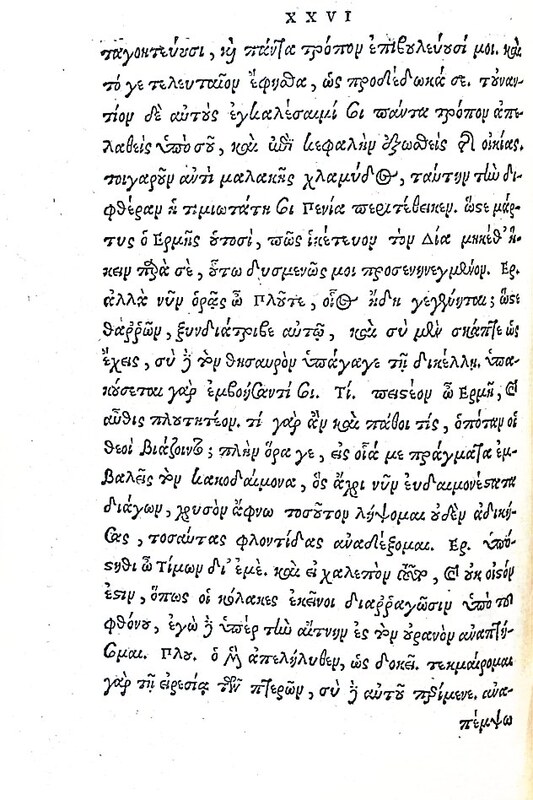 XXVI
ταγοητεύουσι, καὶ πάντα τρόπον ἐπιβουλεύουσί μοι. καὶ
τό γε τελευταῖον ἔφησθα, ὡς προδέδωκά σε. τοὐναν-
τίον δὲ αὐτὸς ἐγκαλέσαιμί σοι πάντα τρόπον ἀπε-
λαθεὶς ὑπὸ σοῦ, καὶ ἐπὶ κεφαλὴν ἐξωσθεὶς τῆς οἰκίας.
τοιγαροῦν ἀντὶ μαλακῆς χλαμύδος, ταύτην τὴν δι-
φθέραν ἡ τιμιωτάτη σοι Πενία περιτέθεικεν. ὥστε μάρ-
τυς ὁ Ἑρμῆς οὑτοσί, πῶς ἱκέτευον τὸν Δία μηκέθ' ἥ-
κειν παρὰ σὲ, οὕτω δυσμενῶς μοι προσενηνεγμένον. Ερ.
ἀλλὰ νῦν ὁρᾷς ὦ Πλοῦτε, οἷος ἤδη γεγένηται; ὥστε
θαῤῥῶν, ξυνδιάτριβε αὐτῷ, καὶ σὺ μὲν σκάπτε ὡς
ἔχεις, σὺ δὲ τὸν θησαυρὸν ὑπάγαγε τῇ δικέλλῃ. ὑπα-
κούσεται γὰρ ἐμβοήσαντί σοι. Τί. πειστέον ὦ Ἑρμῆ, καὶ
αὖθις πλουτητέον. τί γὰρ ἂν καὶ πάθοι τίς, ὁπόταν οἱ
θεοὶ βιάζοιντο; πλὴν ὅρα γε, εἰς οἷά με πράγματα ἐμ-
βαλεῖς τὸν κακοδαίμονα, ὃς ἄχρι νῦν εὐδαιμονέστατα
διάγων, χρυσὸν ἄφνω τοσοῦτον λήψομαι οὐδὲν ἀδική-
σας, τοσαύτας φροντίδας ἀναδέξομαι. Ερ. ὑπό-
στηθι ὦ Τίμων δι' ἐμὲ. καὶ εἰ χαλεπὸν τοῦτο, καὶ οὐκ οἰστόν
ἐστιν, ὅπως οἱ κόλακες ἐκεῖνοι διαῤῥαγῶσιν ὑπὸ τοῦ
φθόνου, ἐγὼ δὲ ὑπὲρ τὴν αἴτνην ἐς τὸν οὐρανὸν ἀναπτή-
σομαι. Πλου. ὁ μὲν ἀπελήλυθεν, ὡς δοκεῖ. τεκμαίρομαι
γὰρ τῇ εἰρεσίᾳ τῶν πτερῶν, σὺ δὲ αὐτοῦ περίμενε. ἀνα-
πέμψω